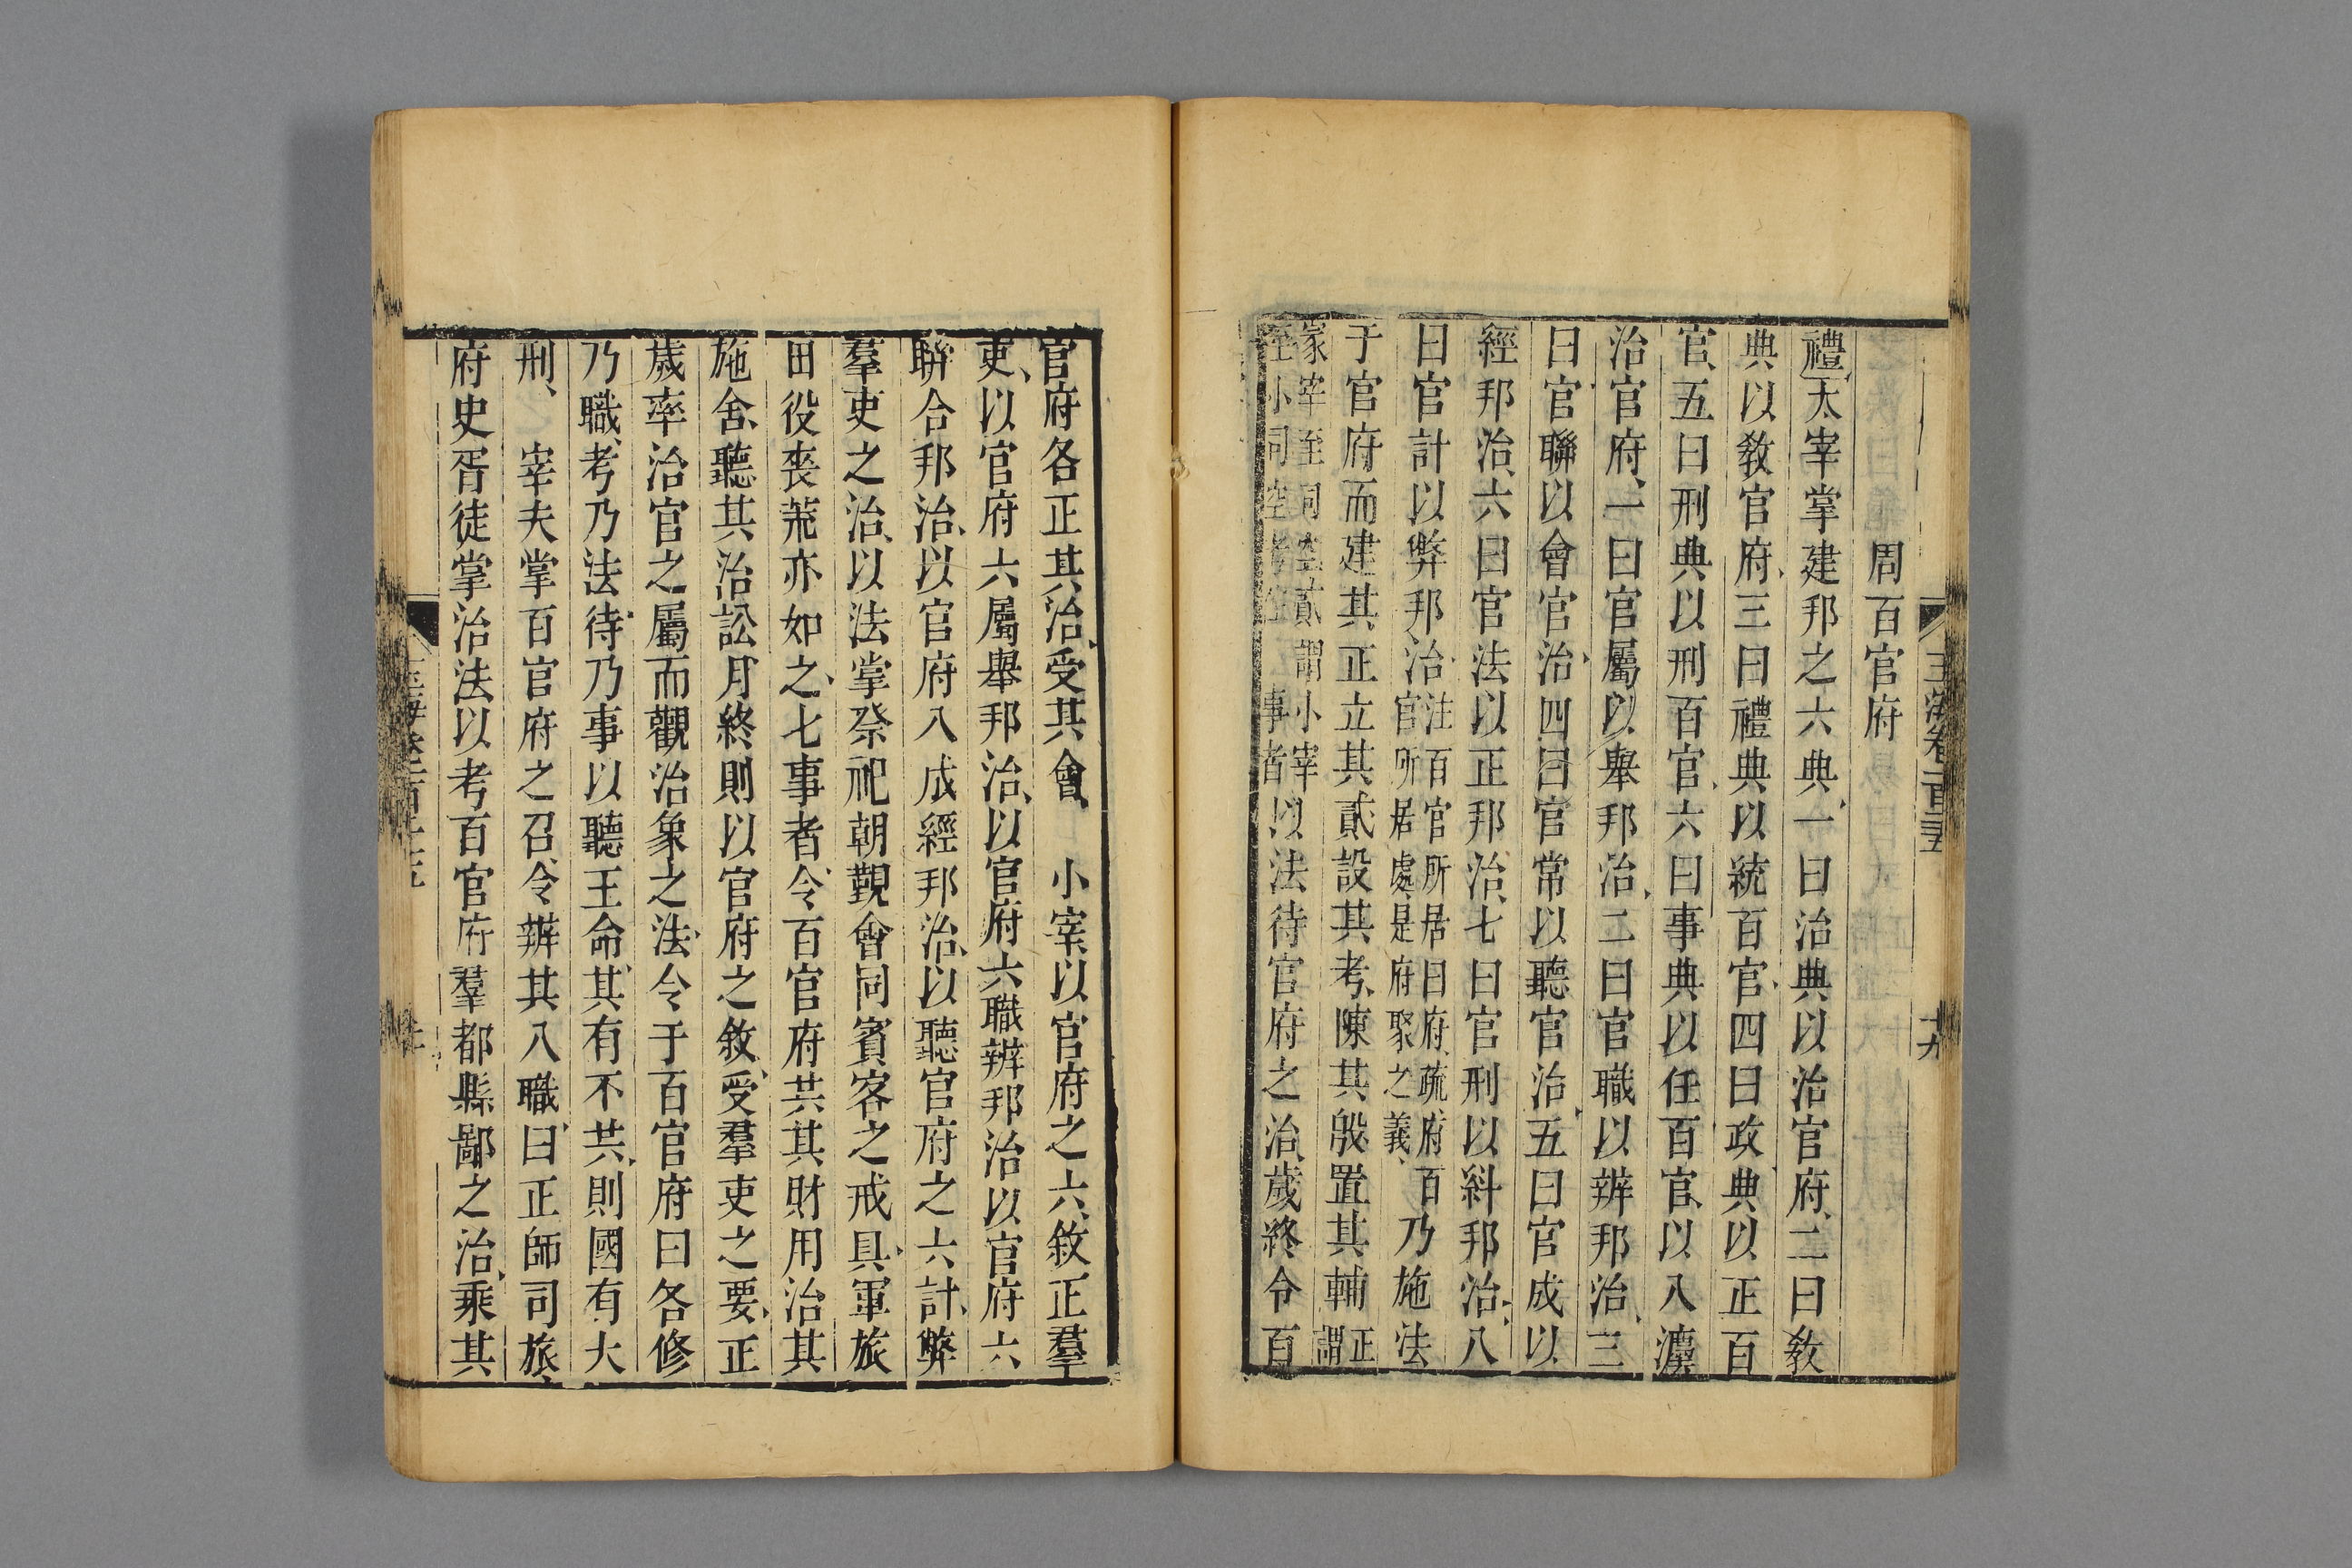 周百官府
禮太宰掌建邦之六典一曰治典以治官府二曰敎
典以敎官府三曰禮典以統百官四曰政典以正百
官五曰刑典以刑百官六曰事典以任百官以八灋
治官府一曰官屬以舉邦治二曰官職以辨邦治三
曰官聯以會官治四曰官常以聽官治五曰官成以
經邦治六曰官法以正邦治七曰官刑以糾邦治八
曰官計以弊邦治注百官所居曰府疏府百官所居處是府聚之義乃施法
于官府而建其正立其貳設其考陳其殷置其輔正謂
冢宰至司空貳謂小宰至小司空考事者以法待官府之治歲終令百
官府各正其治受其會 小宰以官府之六敘正羣
吏以官府六屬舉邦治以官府六職辨邦治以官府六
聯合邦治以官府八成經邦治以聽官府之六計弊
羣吏之治以法掌祭祀朝覲會同賓客之戒具軍旅
田役喪荒亦如之七事者令百官府共其財用治其
施舍聽其治訟月終則以官府之敘受羣吏之要正
歲率治官之屬而觀治象之法令于百官府曰各修
乃職考乃法待乃事以聽王命其有不共則國有大
刑 宰夫掌百官府之召令辨其八職曰正師司旅
府史胥徒掌治法以考百官府羣都縣鄙之治乘其